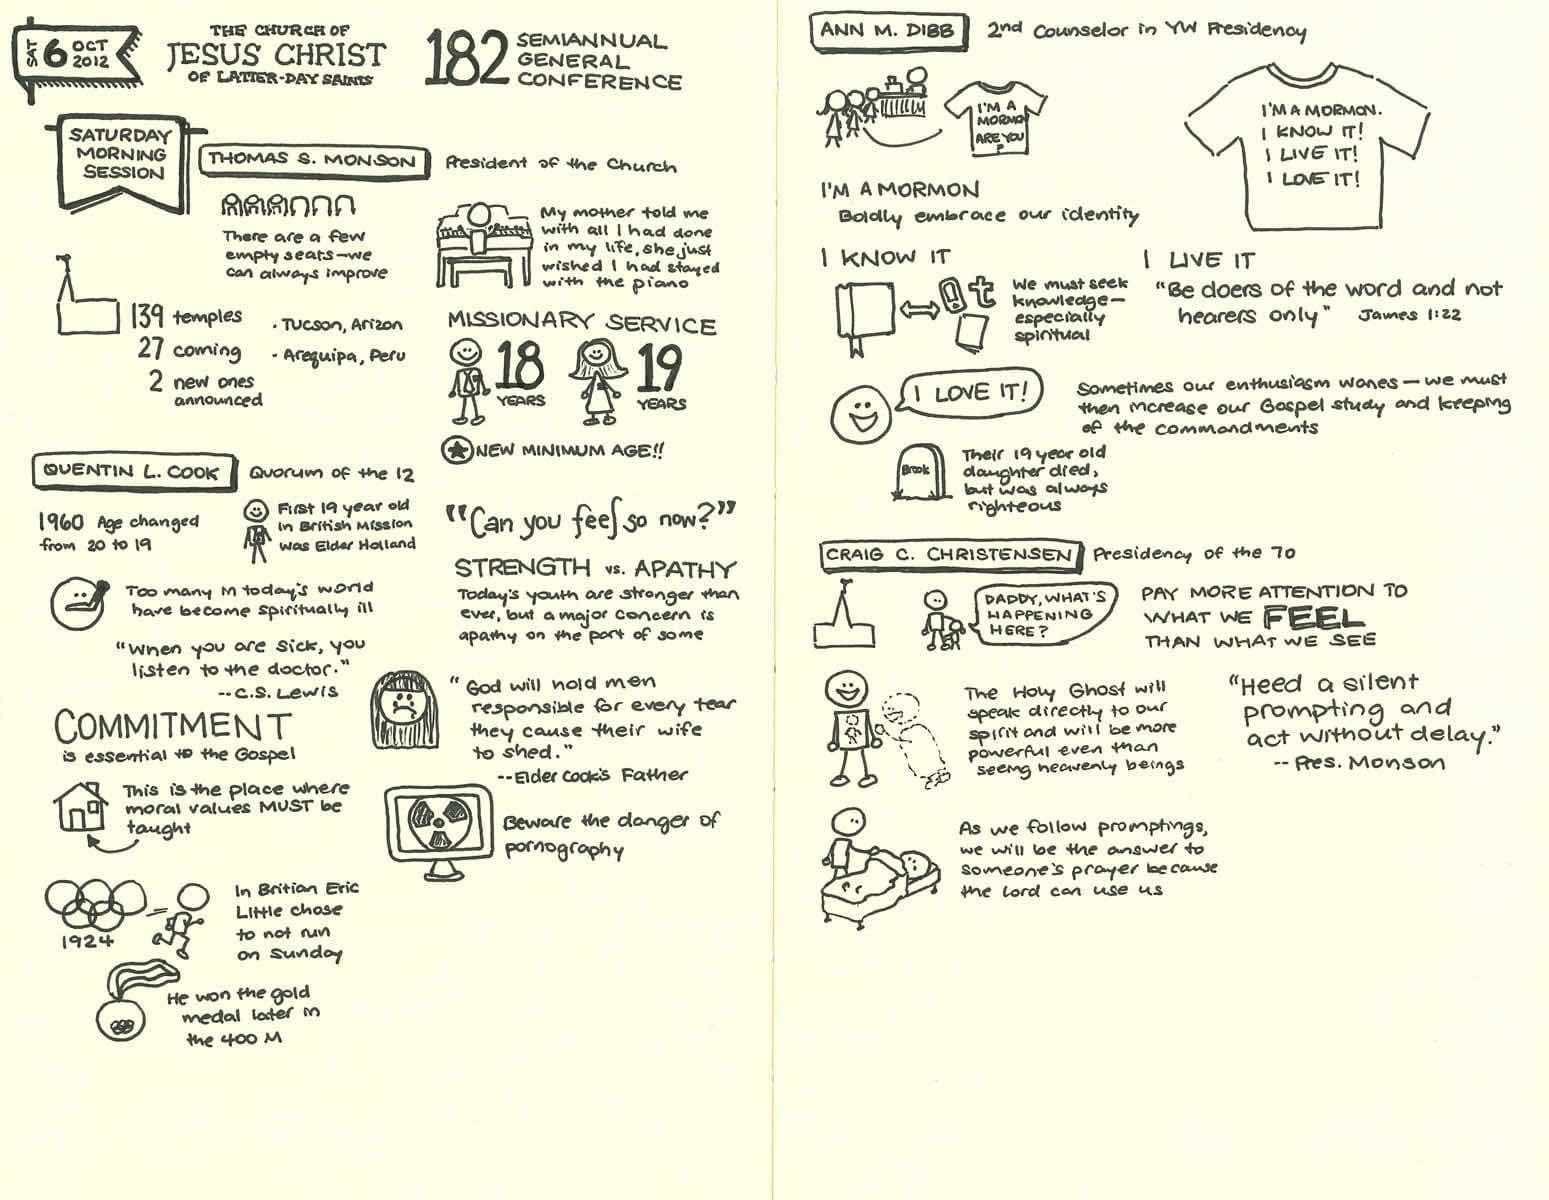 SAT 6 OCT 2012
THE CHURCH OF
JESUS CHRIST
OF LATTER-DAY SAINTS
182 SEMIANNUAL
GENERAL
CONFERENCE
SATURDAY
MORNING
SESSION
THOMAS S. MONSON
President of the Church
There are a few
empty seats—we
can always improve
My mother told me
with all I had done
in my life, she just
wished I had stayed
with the piano
139 temples
27 coming
2 new ones
announced
• Tucson, Arizon
• Arequipa, Peru
MISSIONARY SERVICE
18
YEARS
19
YEARS
NEW MINIMUM AGE!!
QUENTIN L. COOK
Quorum of the 12
1960 Age changed
from 20 to 19
First 19 year old
in British Mission
was Elder Holland
Too many in today's world
have become spiritually ill
"When you are sick, you
listen to the doctor."
--C.S. Lewis
COMMITMENT
is essential to the Gospel
This is the place where
moral values MUST be
taught
1924
In Britian Eric
Little chose
to not run
on Sunday
He won the gold
medal later in
the 400 M
"Can you feel so now?"
STRENGTH vs. APATHY
Today's youth are stronger than
ever, but a major concern is
apathy on the part of some
"God will hold men
responsible for every tear
they cause their wife
to shed."
--Elder Cook's Father
Beware the danger of
pornography
ANN M. DIBB
2nd Counselor in YW Presidency
I'M A
MORMON
ARE YOU
?
I'M A MORMON.
I KNOW IT!
I LIVE IT!
I LOVE IT!
I'M A MORMON
Boldly embrace our identity
I KNOW IT
t
We must seek
knowledge—
especially
spiritual
I LIVE IT
"Be doers of the word and not
hearers only" James 1:22
I LOVE IT!
Sometimes our enthusiasm wanes—we must
then increase our Gospel study and keeping
of the commandments
Brook
Their 19 year old
daughter died,
but was always
righteous
CRAIG C. CHRISTENSEN
Presidency of the 70
DADDY, WHAT'S
HAPPENING
HERE?
PAY MORE ATTENTION TO
WHAT WE FEEL
THAN WHAT WE SEE
The Holy Ghost will
speak directly to our
spirit and will be more
powerful even than
seeing heavenly beings
"Heed a silent
prompting and
act without delay."
-- Pres. Monson
As we follow promptings,
we will be the answer to
someone's prayer because
the Lord can use us